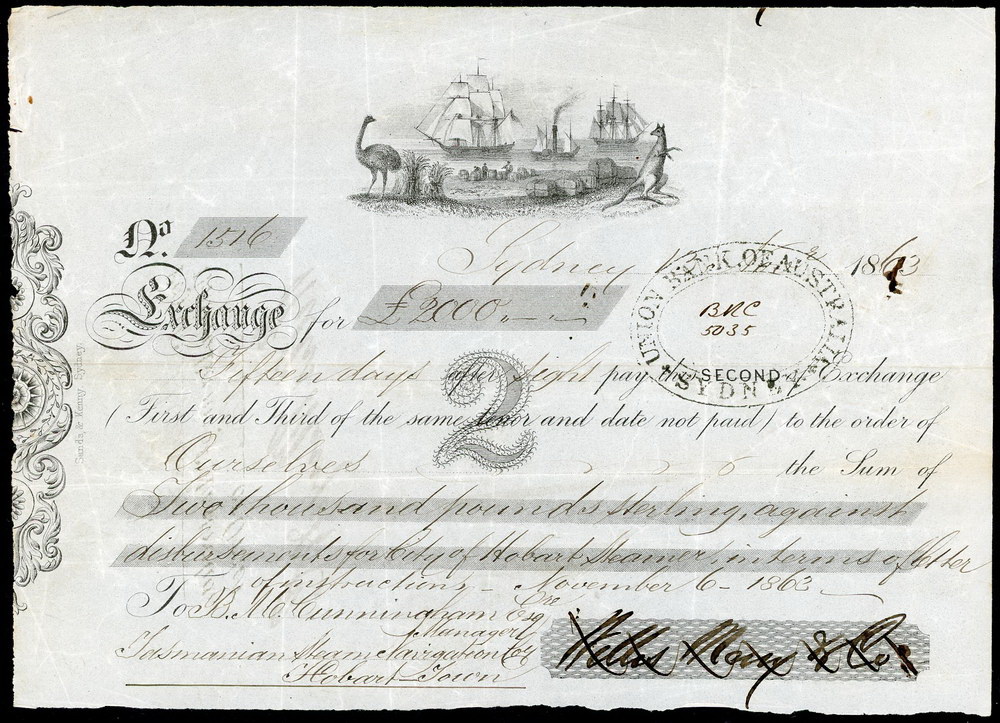 No. 1516
Sydney 1863
Exchange for £2000
UNION BANK OF AUSTRALIA
SYDNEY
BRC
5035
2
Fifteen days after sight pay this SECOND of Exchange
(First and Third of the same tenor and date not paid) to the order of
Ourselves the Sum of
Two thousand pounds sterling, against
disbursements for City of Hobart Steamer, in terms of letter
of instructions - November 6 - 1863
To Cunningham Esqre
Manager
Tasmanian Steam Navigation Coy
Hobart Town
Willis Merry & Co
Sands & Kenny, Sydney.